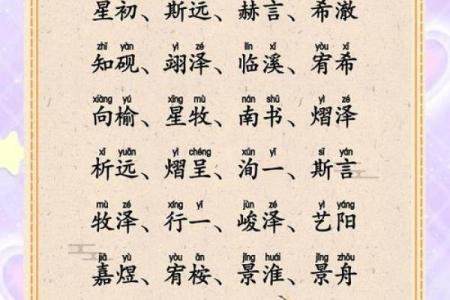 星初、斯远、赫言、希澈
zhī yàn yì zé lín xī yòu xī
知砚、翊泽、临溪、宥希
xiàng yú xīng mù nán shū yì zé
向榆、星牧、南书、熠泽
xī yuǎn yì chéng xún yī sī yán
析远、熠呈、洵一、斯言
mù zé xíng yī jùn zé yì yáng
牧泽、行一、峻泽、艺阳
jiā yù yòu ān jǐng huái jǐng zhōu
嘉煜、宥桉、景淮、景舟